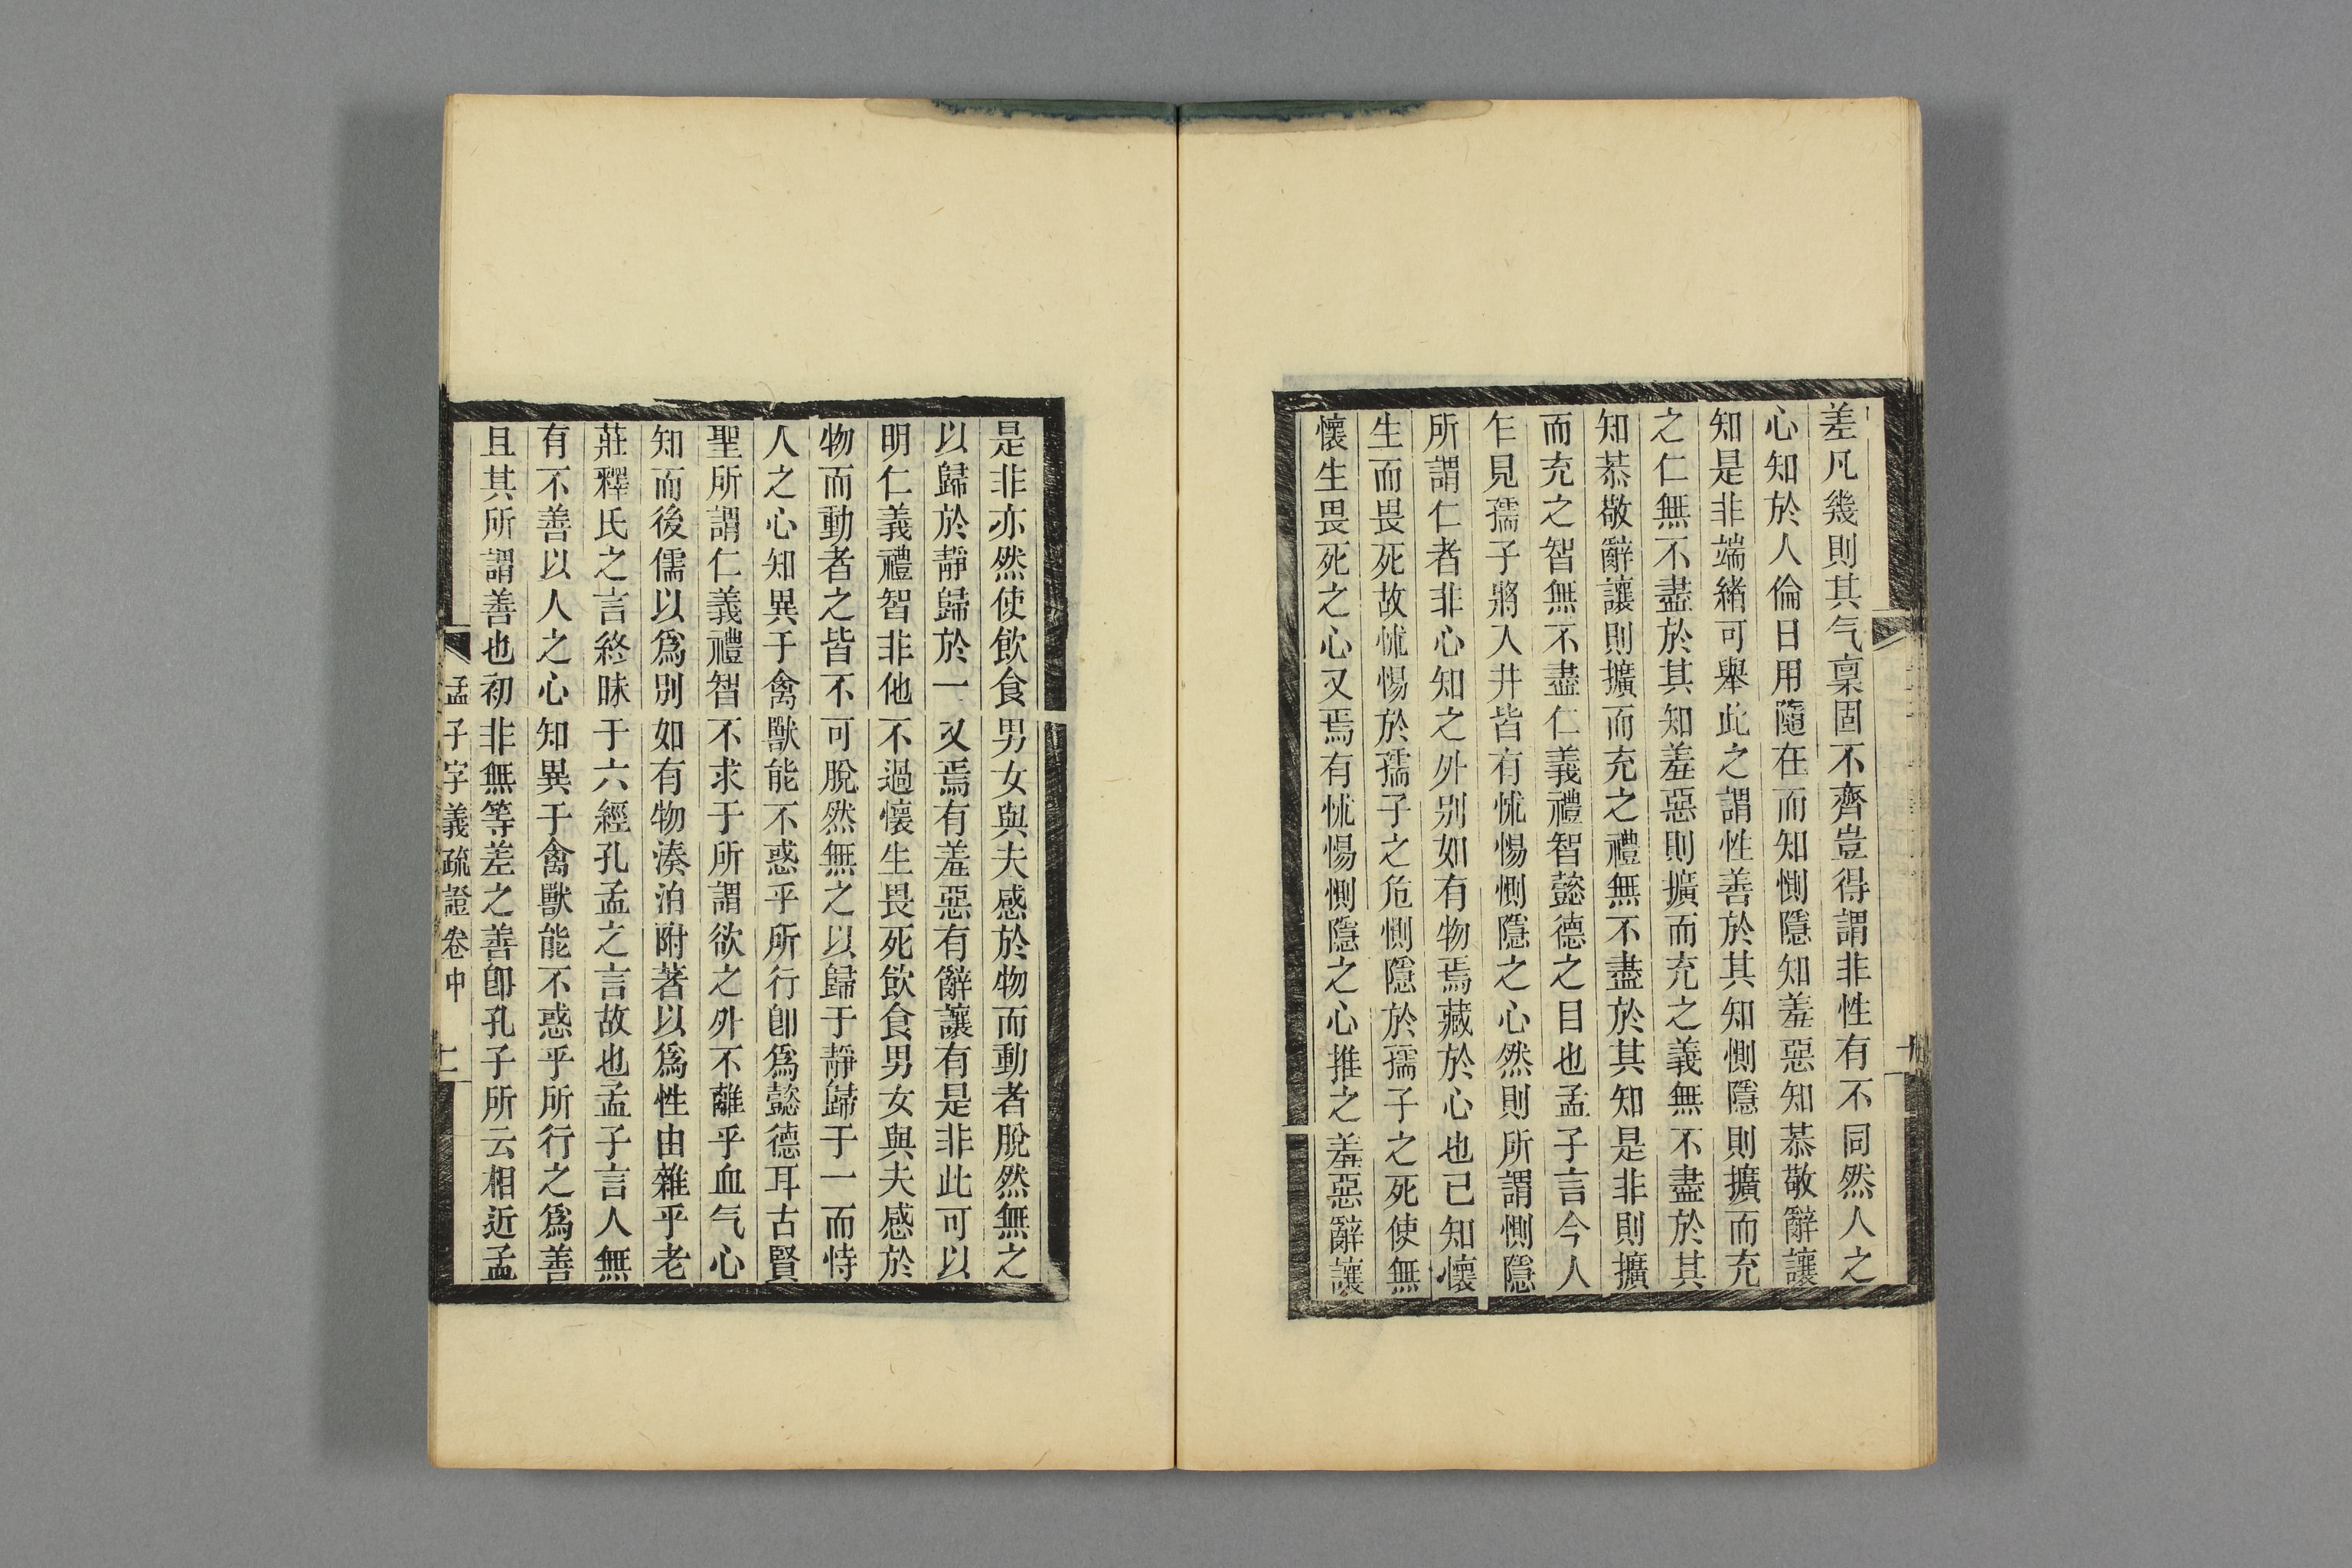 差凡幾則其气稟固不齊豈得謂非性有不同然人之
心知於人倫日用隨在而知惻隱知羞惡知恭敬辭讓
知是非端緒可舉此之謂性善於其知惻隱則擴而充
之仁無不盡於其知羞惡則擴而充之義無不盡於其
知恭敬辭讓則擴而充之禮無不盡於其知是非則擴
而充之智無不盡仁義禮智懿德之目也孟子言今人
乍見孺子將入井皆有怵惕惻隱之心然則所謂惻隱
所謂仁者非心知之外別如有物焉藏於心也已知懷
生而畏死故怵惕於孺子之危惻隱於孺子之死使無
懷生畏死之心又焉有怵惕惻隱之心推之羞惡辭讓
是非亦然使飲食男女與夫感於物而動者脫然無之
以歸於靜歸於一又焉有羞惡有辭讓有是非此可以
明仁義禮智非他不過懷生畏死飲食男女與夫感於
物而動者之皆不可脫然無之以歸于靜歸于一而恃
人之心知異于禽獸能不惑乎所行卽爲懿德耳古賢
聖所謂仁義禮智不求于所謂欲之外不離乎血气心
知而後儒以爲別如有物湊泊附著以爲性由雜乎老
莊釋氏之言終昧于六經孔孟之言故也孟子言人無
有不善以人之心知異于禽獸能不惑乎所行之爲善
且其所謂善也初非無等差之善卽孔子所云相近孟
孟子字義疏證卷中